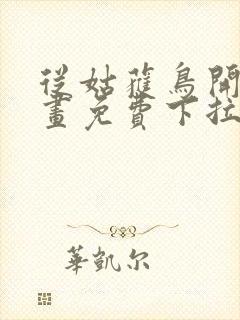 從姑蒦鳥開
畫免費下拉
華凱尔